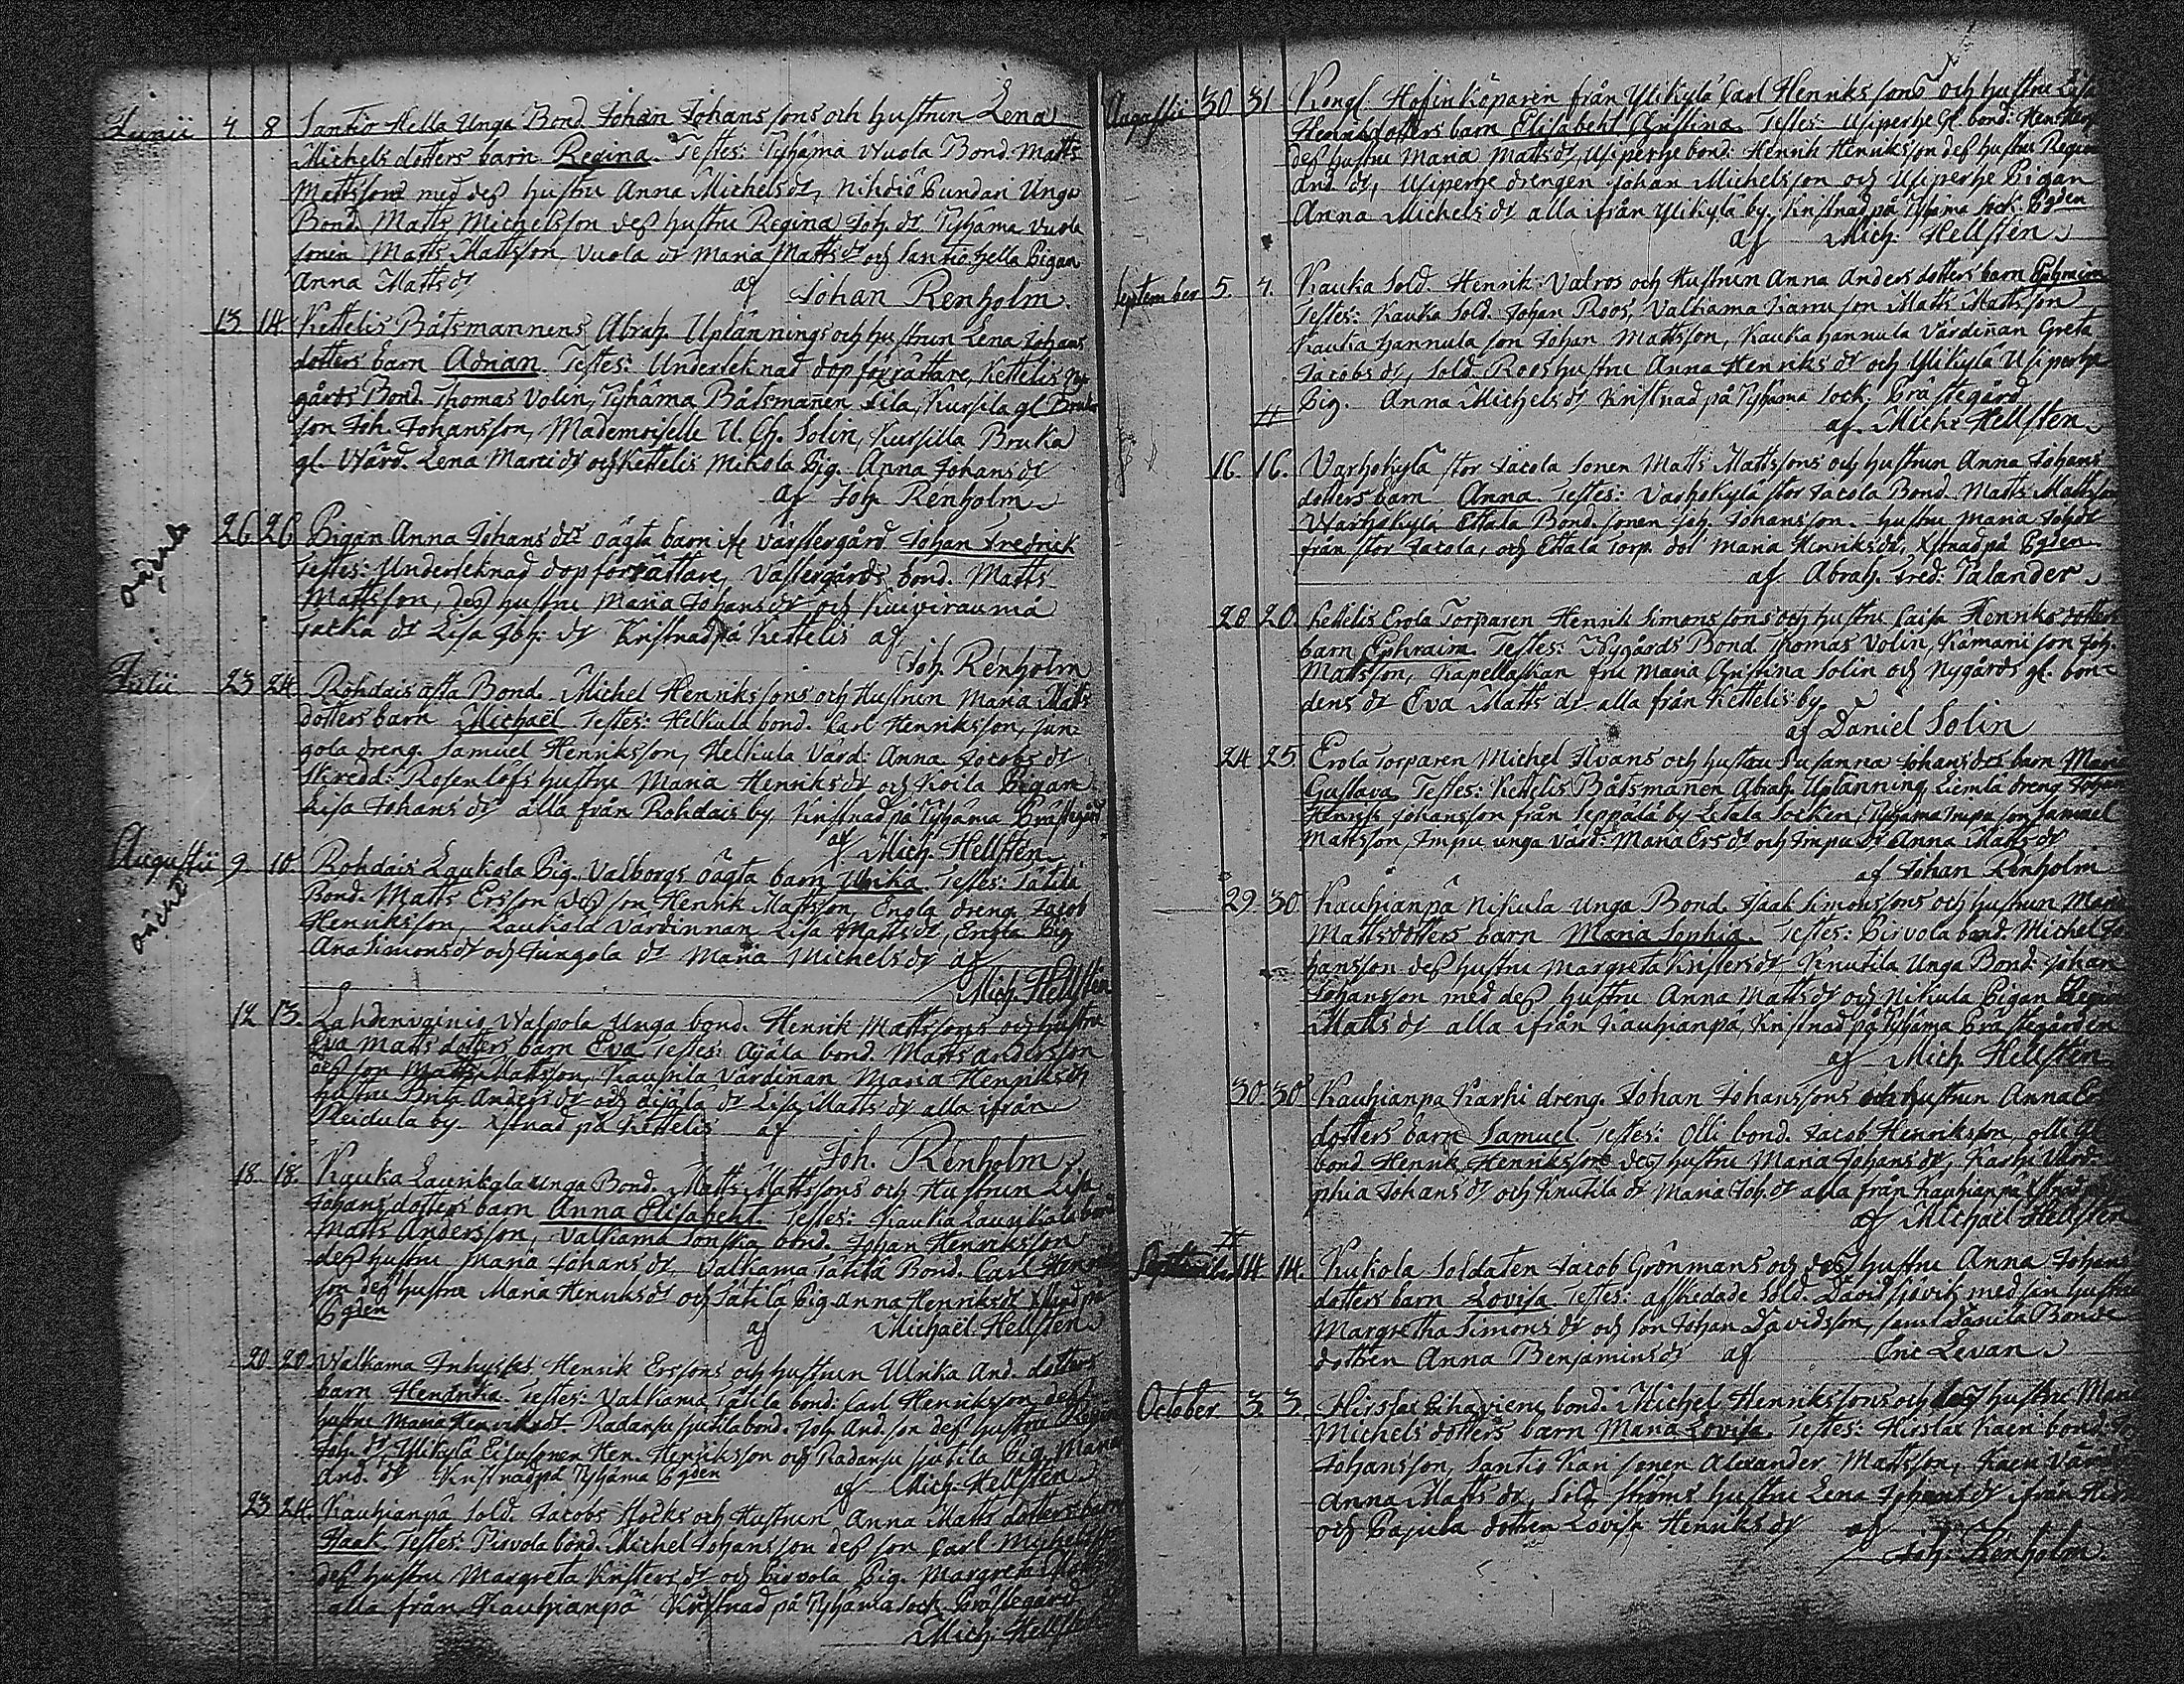 Junii 4 8 Santio Hella Unga Bond Johan Johanssons och hustrun Lena
Michels dotters barn Regina. Testes: Pyhäma Wuola Bond. Matts
Mattsson med dess hustru Anna Michels dr, Nihdiö Pundari Unga
Bond. Matts Michelsson dess hustru Regina Joh. dr Pyhäma Vuola
sonen Matts Mattsson, Vuola dr Maria Matts dr och Santio hella Pigan
Anna Matts dr af Johan Renholm.
13 14 Kettelis Båtsmannens Abrah. Uplännings och hustrun Lena Johans
dotters barn Adrian. Testes: Underteknad dopförrättare, Kettelis Ny-
gårds Bond. Thomas Volin, Pyhäma Båtsmanen Lila, Kursila gl.
son Joh. Johansson, Mademoiselle U. Ch. Solin, Kursilla Bruka
gl. Wård. Lena Marci dr och Kettelis Mikola Pig. Anna Johans dr
af Joh. Renholm
oächta
26 26 Pigan Anna Johans drs oägta barn Västergård Johan Fredrick
Testes: Underteknad dopförrättare, Västergårds bond. Matts
Mattsson, dess hustru Maria Johans dr och Kuivirauma
Jacka dr Lisa Joh. dr Kristnad på Kettelis af
Joh. Renholm
Julii 23 24 Rohdais assa Bond. Michel Henrikssons och Hustrun Maria Matts
dotters barn Michaël Testes: Heikula bond. Carl Henriksson, Jun-
gola dreng. Samuel Henriksson, Heikula Värd: Anna Jacobs dr
Skredd: Rosenlöfs hustru Maria Henriks dr och Koila Pigan
Lisa Johans dr alla från Rohdais by Kristnad på Pyhäma Prästegård
af Mich. Hellsten
Augustii 9. 10. Rohdais Laukola Pig. Valborgs oägta barn Ulrika. Testes: Tätilä
oächta
Bond. Matts Ersson dess son Henrik Mattsson, Erola dreng. Jacob
Henriksson, Laukola Värdinnan Lisa Matts dr, Erola Pig
Ana Simons dr och Jungola dr Maria Michels dr af
Mich. Hellsten
12 13. Lahdenvainio Walpola Unga bond. Henrik Mattssons och hustru
Eva Matts dotters barn Eva Testes: Äijälä bond. Matts Andersson
dess son Matts Mattsson, Kaupila Värdinan Maria Henriks dr
hustru Brita Anders dr och Äijälä dr Lisa Matts dr alla ifrån
Reidula by Xstnad på Kettelis af
Joh. Renholm
18. 18. Kauka Laurikala Unga Bond. Matts Mattssons och Hustrun Lisa
Johans dotters barn Anna Elisabeht. Testes: Kauka Laurikala bond
Matts Andersson, Valkama Sonska bond. Johan Henriksson
dess hustru Maria Johans dr, Valkama Tätilä Bond. Carl Henrik
son dess hustru Maria Henriks dr och Tätilä Pig. Anna Henriks dr Xstnad på
Pgden af Michaël Hellsten
20 20 Walkama Inhyses Henrik Erssons och hustrun Ulrika And. dotters
barn Hendrika. Testes: Valkama Tätilä bond. Carl Henriksson dess
hustru Maria Henriks dr. Radansu Sjutila bond. Joh. And. son dess hustru Regina
Joh. dr, Ylikylä sonen Hen. Henriksson och Radansu sjutila Pig. Maria
And. dr Kristnad på Pyhäma Pgden af Mich. Hellsten
23 24. Kauhianpä Sold. Jacobs Stocks och Hustrun Anna Matts dotters barn
Isaak Testes: Pirvola bond. Michel Johansson dess son Carl
dess hustru Margreta Kristers dr och Pirvola Pig. Margreta
alla från Kauhianpä Kristnad på Pyhäma Sock. Prästegård
Mich. Hellsten
Augustii 30 31 Kongl. Hofinköparen från Ylikylä Carl Henrikssons och hustru Lisa
Henriksdotters barn Elisabeht Christina. Testes: Usiperhe gl. bond:
dess hustru Maria Matts dr, Usiperhe bond. Henrik Henriksson dess hustru Regina
And dr, Usiperhe drengen Johan Michelsson och Usiperhe Pigan
Anna Michels dr alla ifrån Ylikylä by. Kristnad på Pyhäma Sock. Pgden
af Mich. Hellsten
September 5. 4. Kauka Sold. Henrik Valros och Hustrun Anna Anders dotters barn Ephraim
Testes: Kauka Sold. Johan Roos, Valkama Karru son Matts Mattsson
Kauka hannula son Johan Mattsson, Kauka hannula Värdinan Greta
Jacobs dr, Sold. Roos hustru Anna Henriks dr och Ylikylä Usiperhe
Pig. Anna Michels dr Kristnad på Pyhäma Sock. Prästegård
af. Mich. Hellsten
16. 16. Varhokylä stor Jacola Sonen Matts Mattssons och hustrun Anna Johans
dotters barn Anna Testes: Varhokylä stor Jacola Bond. Matts Mattsson
Warhokylä Ettala Bond. sonen Joh. Johansson. hustru Maria Joh dr
från stor Jacola, och Ettala Torp. dot. Maria Henriks dr, Xstnad på Pgden
af Abrah. Fred: Palander
20 20. Kettelis Erola Torparen Henrik Simonssons och hustru Caisa Henriks dotters
barn Ephraim. Testes: Nygårds Bond. Thomas Volin, Kämari son Joh.
Mattsson, Kapellaskan fru Maria Christina Solin och Nygårds gl. bon-
dens dr Eva Matts dr alla från Kettelis by
af Daniel Solin
24 25 Erola Torparen Michel Ilvans och hustru Susanna Johans drs barn Maria
Gustava Testes: Kettelis Båtsmanen Abrah. Uplänning, Liemlä dreng. Johan
Henrik Johansson från Seppälä by Letala Socken, Pyhäma Impu son Samuel
Mattsson, Impu unga Värd: Maria Ers dr och Impu dr Anna Matts dr
af Johan Renholm
29. 30 Kauhianpä Nikula Unga Bond. Isaak Simonssons och hustrun Maria
Mattsdotters barn Maria Sophia. Testes: Pirvola bond. Michel Jo
hansson dess hustru Margreta Kristers dr, Knutila Unga Bond. Johan
Johansson med dess hustru Anna Matts dr och Nikula Pigan Regina
Matts dr alla ifrån Kauhianpä, Kristnad på Pyhäma Prästegården
af Mich. Hellsten
30. 30 Kauhianpä Karhi dreng. Johan Johanssons och hustrun Anna
dotters barn Samuel Testes: Olli bond. Jacob Henriksson, Olli gl
bond Henrik Henriksson dess hustru Maria Johans dr, Karhi Värd.
phia Johans dr och Knutila dr Maria Joh. dr alla från Kauhianpä
af Michaël Hellsten
September 14 14. Kukola Soldaten Jacob Grönmans och dess hustru Anna Johans
dotters barn Lovisa Testes: afskedade Sold. David Sjövik med sin hustru
Margretha Simons dr och son Johan Davidsson, samt Danila Bonde
dotren Anna Benjamins dr af Eric Levan
October 3. 3. Hirslax bond. Michel Henrikssons och dess hustru Maria
Michels dotters barn Maria Lovisa. Testes: Hirslax Kaen bond.
Johansson, Santio Kari sonen Alexander Mattsson, Kaen Värd
Anna Matts dr, Sold. Ströms hustru Lena dr ifrån
och Pajula dotren Lovisa Henriks dr af
Joh. Renholm.